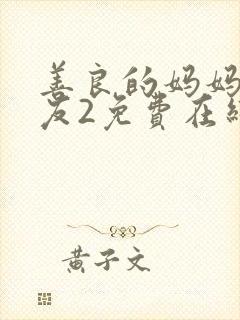 善良的妈妈
友2免費在
黄子文